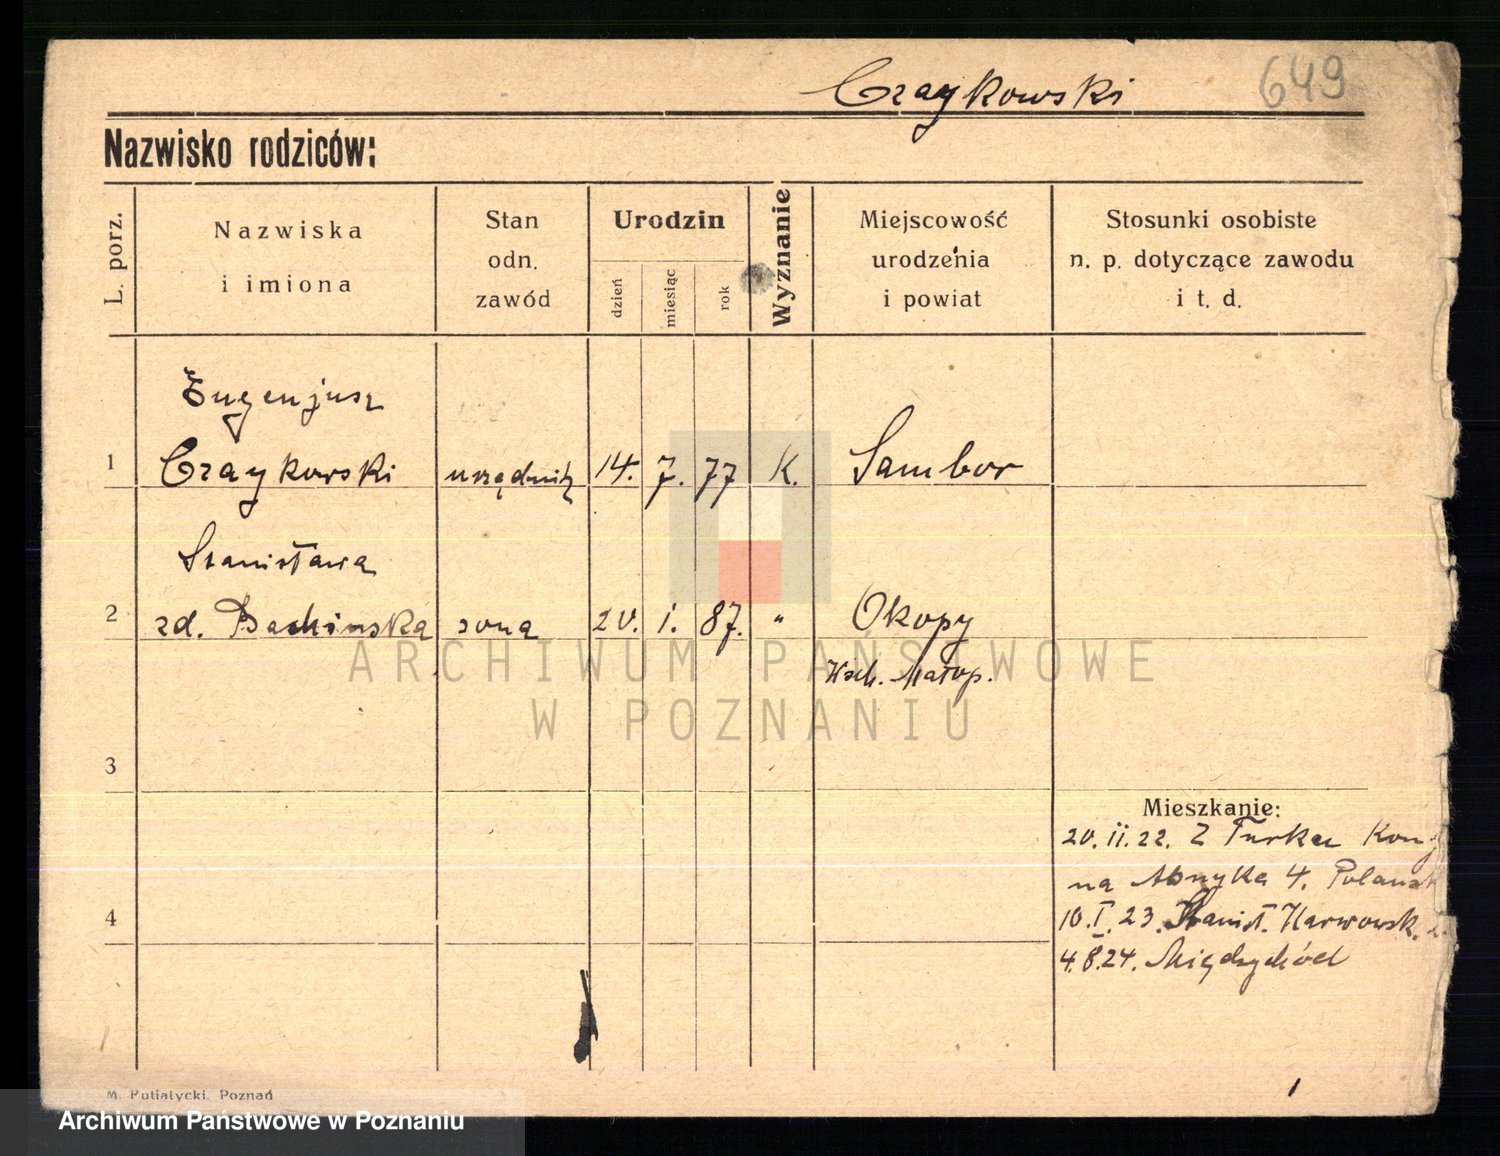 Czaykowski 649
Nazwisko rodziców:
L. porz.
Nazwiska
i imiona
Stan
odn.
zawód
Urodzin
dzień
miesiąc
rok
Wyznanie
Miejscowość
urodzenia
i powiat
Stosunki osobiste
n. p. dotyczące zawodu
i t. d.
Eugenjusz
1 Czaykowski urzędnik 14. 7. 77 K. Sambor
Stanisława
2 zd. żona 20. 1. 87. " Okopy
Wsch. Małop.
3
Mieszkanie:
20. II. 22. Z Turka
na 4.
4
10. I. 23. Stanisł. Karwowsk.
4. 8. 24. Międzychód
M. Putiatycki, Poznań
ARCHIWUM PAŃSTWOWE
W POZNANIU
Archiwum Państwowe w Poznaniu